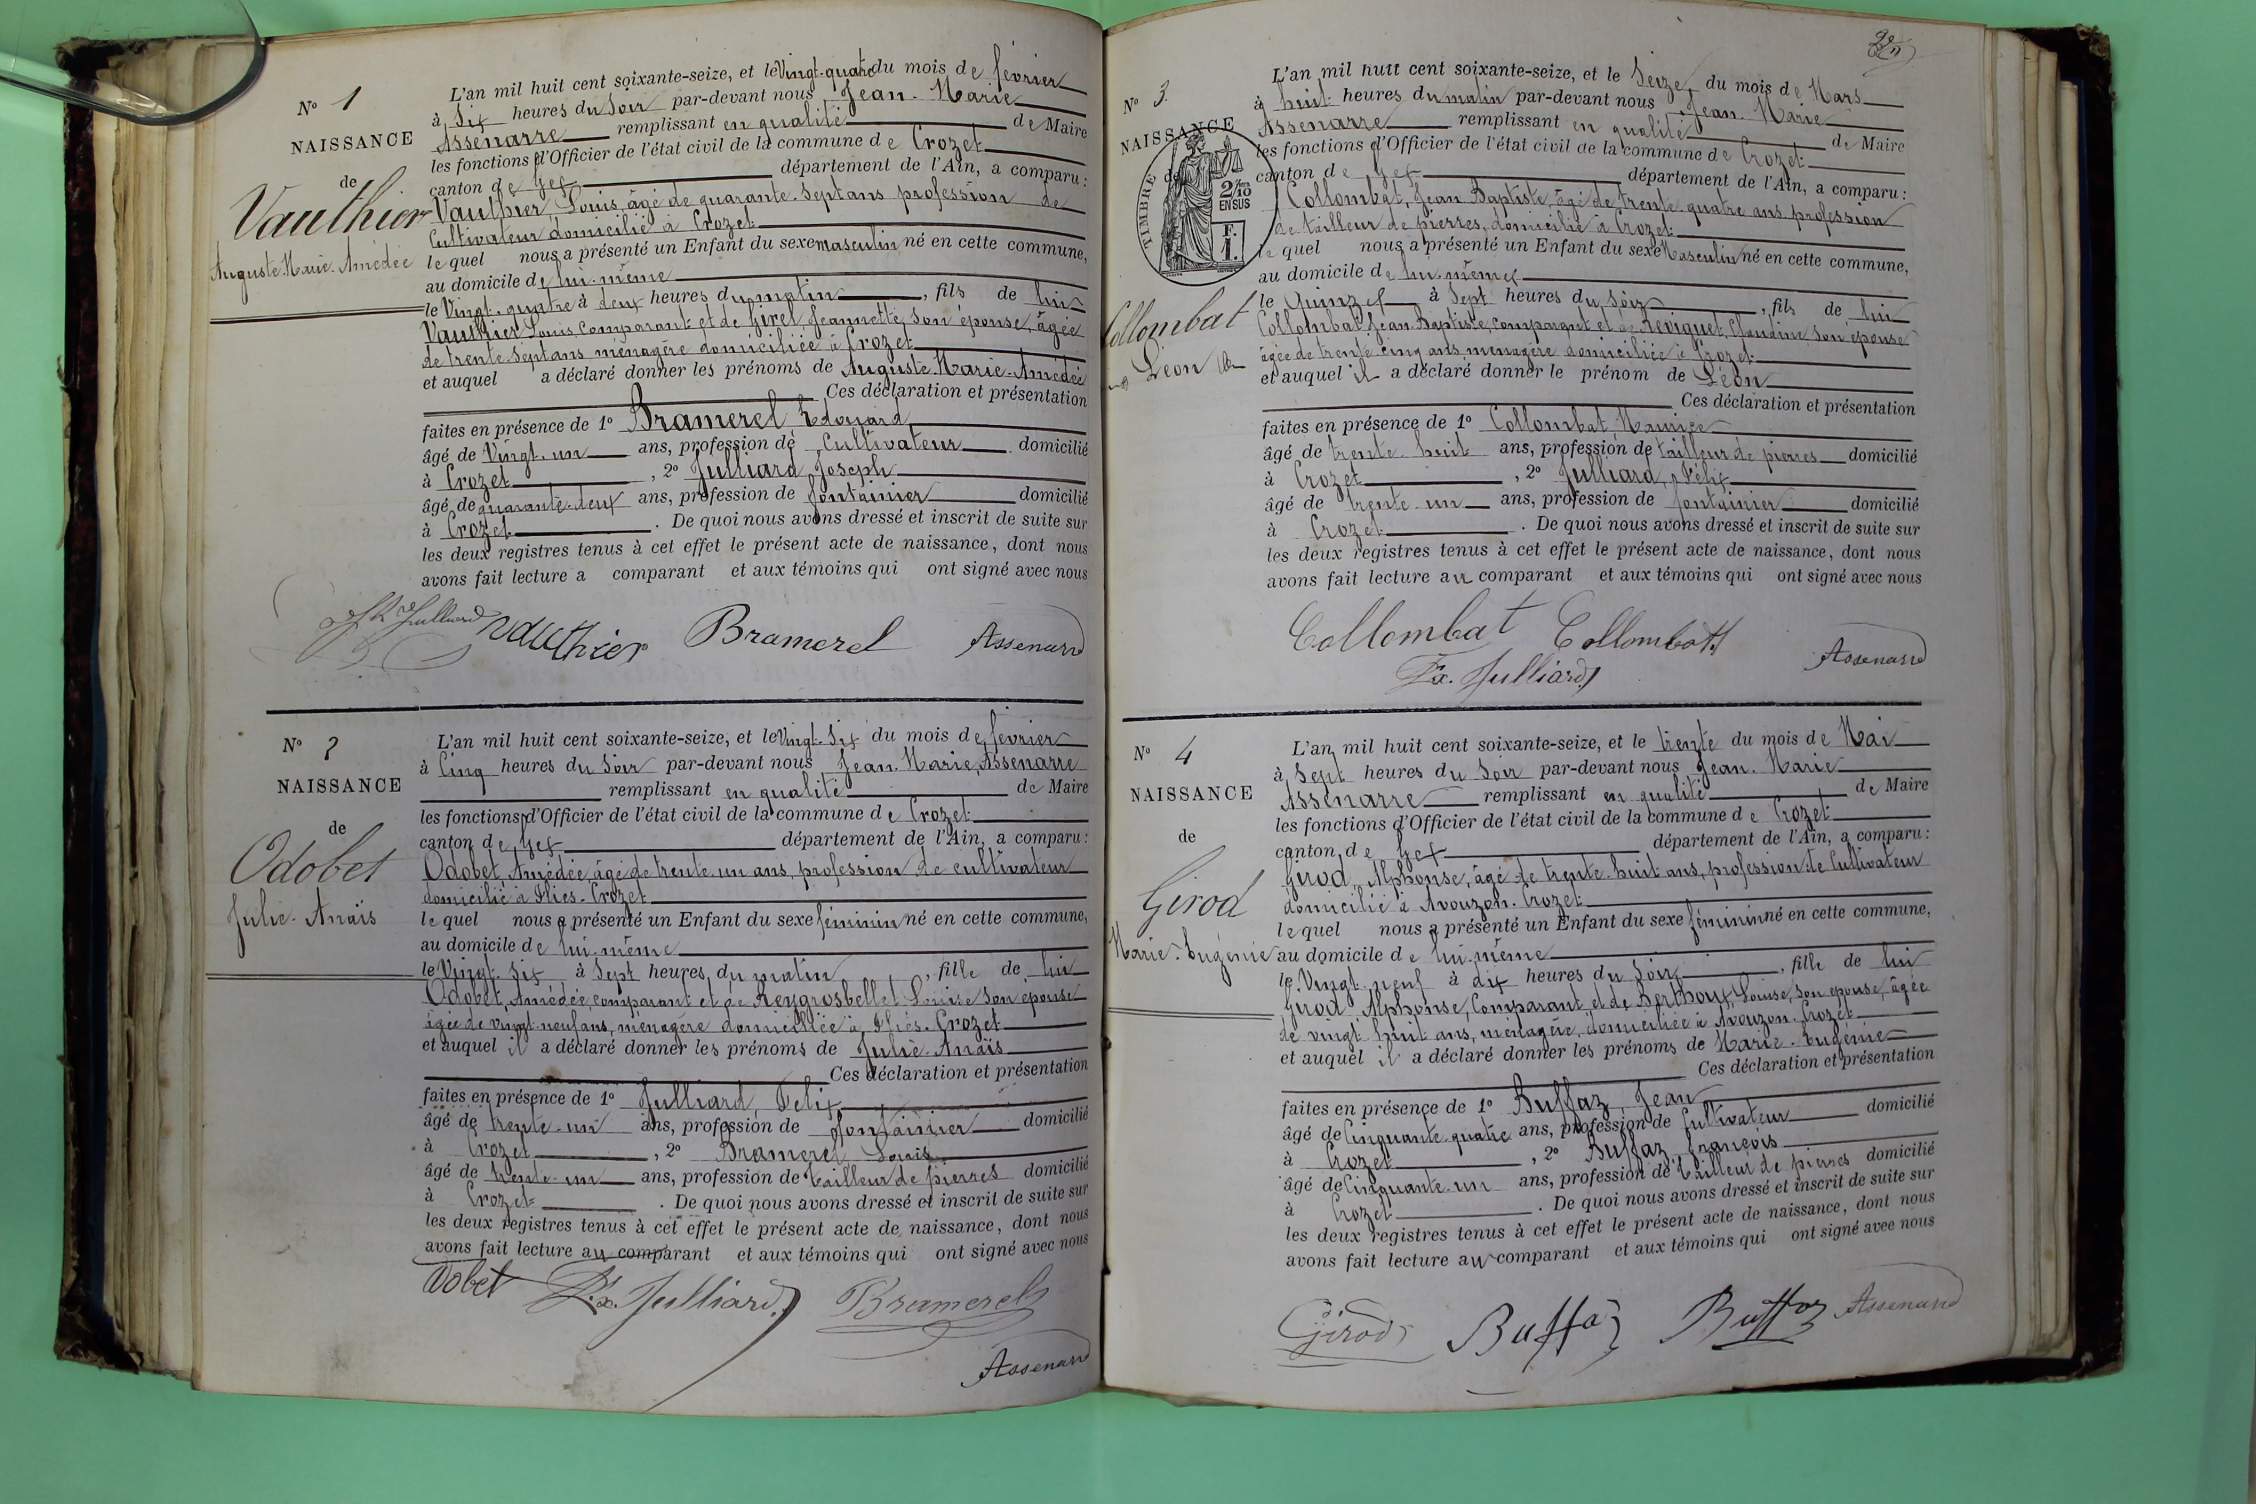 N° 1
NAISSANCE
de
Vauthier
Auguste-Marie-Amédée
L'an mil huit cent soixante-seize, et le Vingt-quatre du mois de février
à Six heures du Soir par-devant nous Jean-Marie
Assenarre remplissant en qualité de Maire
les fonctions d'Officier de l'état civil de la commune de Crozet
canton de Gex département de l'Ain, a comparu :
Vauthier Louis, âgé de quarante-sept ans profession de
Cultivateur domicilié à Crozet
lequel nous a présenté un Enfant du sexe masculin né en cette commune,
au domicile de lui-même
le Vingt-quatre à deux heures du matin, fils de lui
Vauthier Louis, comparant et de Girel Jeannette, son épouse, âgée
de trente-sept ans, ménagère domiciliée à Crozet
et auquel a déclaré donner les prénoms de Auguste-Marie-Amédée
Ces déclaration et présentation
faites en présence de 1° Bramerel, Edouard
âgé de Vingt-un ans, profession de Cultivateur domicilié
à Crozet, 2° Julliard, Joseph
âgé de quarante-deux ans, profession de fontainier domicilié
à Crozet. De quoi nous avons dressé et inscrit de suite sur
les deux registres tenus à cet effet le présent acte de naissance, dont nous
avons fait lecture a comparant et aux témoins qui ont signé avec nous
Jh Julliard Vauthier Bramerel Assenarre
N° 2
NAISSANCE
de
Odobet
Julie-Anaïs
L'an mil huit cent soixante-seize, et le Vingt-Six du mois de février
à Cinq heures du Soir par-devant nous Jean-Marie, Assenarre
remplissant en qualité de Maire
les fonctions d'Officier de l'état civil de la commune de Crozet
canton de Gex département de l'Ain, a comparu :
Odobet, Amédée, âgé de trente-un ans, profession de cultivateur
domicilié à Flies-Crozet
lequel nous a présenté un Enfant du sexe féminin né en cette commune,
au domicile de lui-même
le Vingt-Six à Sept heures du matin, fille de lui
Odobet, Amédée, comparant et de Reygrosbellet Louise son épouse
âgée de vingt-neuf ans, ménagère domiciliée à Flies-Crozet
et auquel il a déclaré donner les prénoms de Julie-Anaïs
Ces déclaration et présentation
faites en présence de 1° Julliard, Félix
âgé de trente-un ans, profession de fontainier domicilié
à Crozet, 2° Bramerel Louis
âgé de trente-un ans, profession de tailleur de pierres domicilié
à Crozet. De quoi nous avons dressé et inscrit de suite sur
les deux registres tenus à cet effet le présent acte de naissance, dont nous
avons fait lecture au comparant et aux témoins qui ont signé avec nous
Fx. Julliard Bramerel
Assenarre
N° 3
NAISSANCE
de
Collombat
Léon
TIMBRE
2/10
EN SUS
F.
1.
L'an mil huit cent soixante-seize, et le Seize du mois de Mars
à huit heures du matin par-devant nous Jean-Marie
Assenarre remplissant en qualité de Maire
les fonctions d'Officier de l'état civil de la commune de Crozet
canton de Gex département de l'Ain, a comparu :
Collombat, Jean Baptiste, âgé de trente-quatre ans profession
de tailleur de pierres, domicilié à Crozet
lequel nous a présenté un Enfant du sexe Masculin né en cette commune,
au domicile de lui-même
le Quinze à Sept heures du Soir, fils de lui
Collombat Jean Baptiste, comparant et de Reviquet, Claudine son épouse
âgée de trente-cinq ans, ménagère domiciliée à Crozet
et auquel il a déclaré donner le prénom de Léon
Ces déclaration et présentation
faites en présence de 1° Collombat, Maurice
âgé de trente-huit ans, profession de tailleur de pierres domicilié
à Crozet, 2° Julliard, Félix
âgé de trente-un ans, profession de fontainier domicilié
à Crozet. De quoi nous avons dressé et inscrit de suite sur
les deux registres tenus à cet effet le présent acte de naissance, dont nous
avons fait lecture au comparant et aux témoins qui ont signé avec nous
Collombat Collombat
Fx. Julliard Assenarre
N° 4
NAISSANCE
de
Girod
Marie-Eugénie
L'an mil huit cent soixante-seize, et le trente du mois de Mai
à Sept heures du Soir par-devant nous Jean-Marie
Assenarre remplissant en qualité de Maire
les fonctions d'Officier de l'état civil de la commune de Crozet
canton de Gex département de l'Ain, a comparu :
Girod, Alphonse, âgé de trente-huit ans, profession de Cultivateur
domicilié à Avouzon-Crozet
lequel nous a présenté un Enfant du sexe féminin né en cette commune,
au domicile de lui-même
le Vingt-neuf à dix heures du Soir, fille de lui
Girod Alphonse, Comparant et de Berthoux, Louise, son épouse, âgée
de vingt-huit ans, ménagère, domiciliée à Avouzon-Crozet
et auquel il a déclaré donner les prénoms de Marie-Eugénie
Ces déclaration et présentation
faites en présence de 1° Buffaz Jean
âgé de Cinquante-quatre ans, profession de Cultivateur domicilié
à Crozet, 2° Buffaz, François
âgé de Cinquante-un ans, profession de tailleur de pierres domicilié
à Crozet. De quoi nous avons dressé et inscrit de suite sur
les deux registres tenus à cet effet le présent acte de naissance, dont nous
avons fait lecture au comparant et aux témoins qui ont signé avec nous
Girod Buffaz Buffaz Assenarre